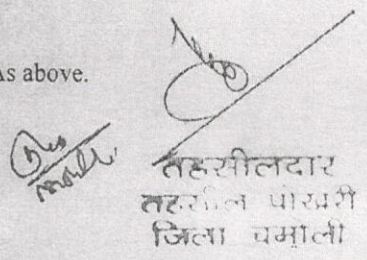 As above.
तहसीलदार
तहसील पोखरी
जिला चमोली